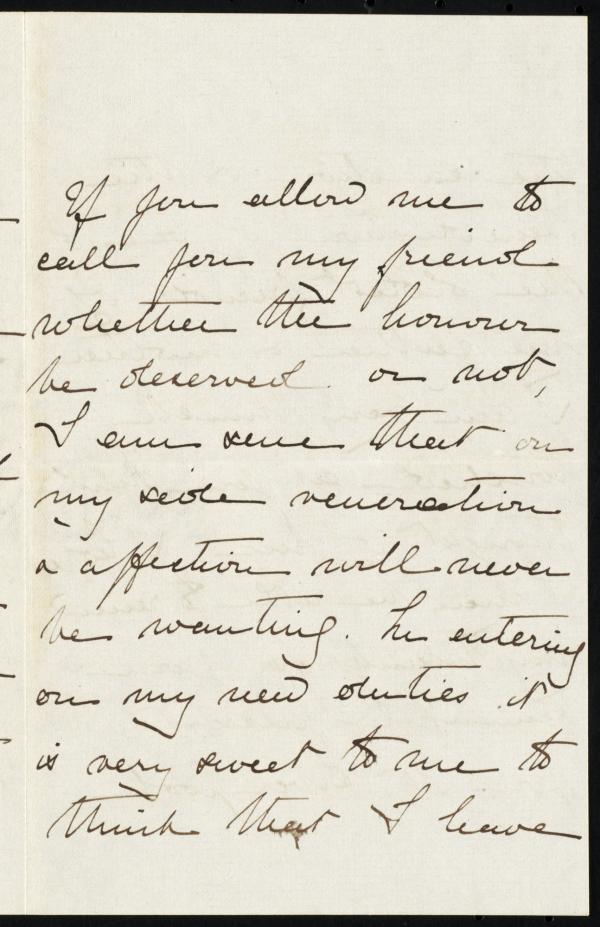 If you allow me to
call you my friend
whether the honour
be deserved or not,
I am sure that on
my side veneration
& affection will never
be wanting. In entering
on my new duties it
is very sweet to me to
think that I have